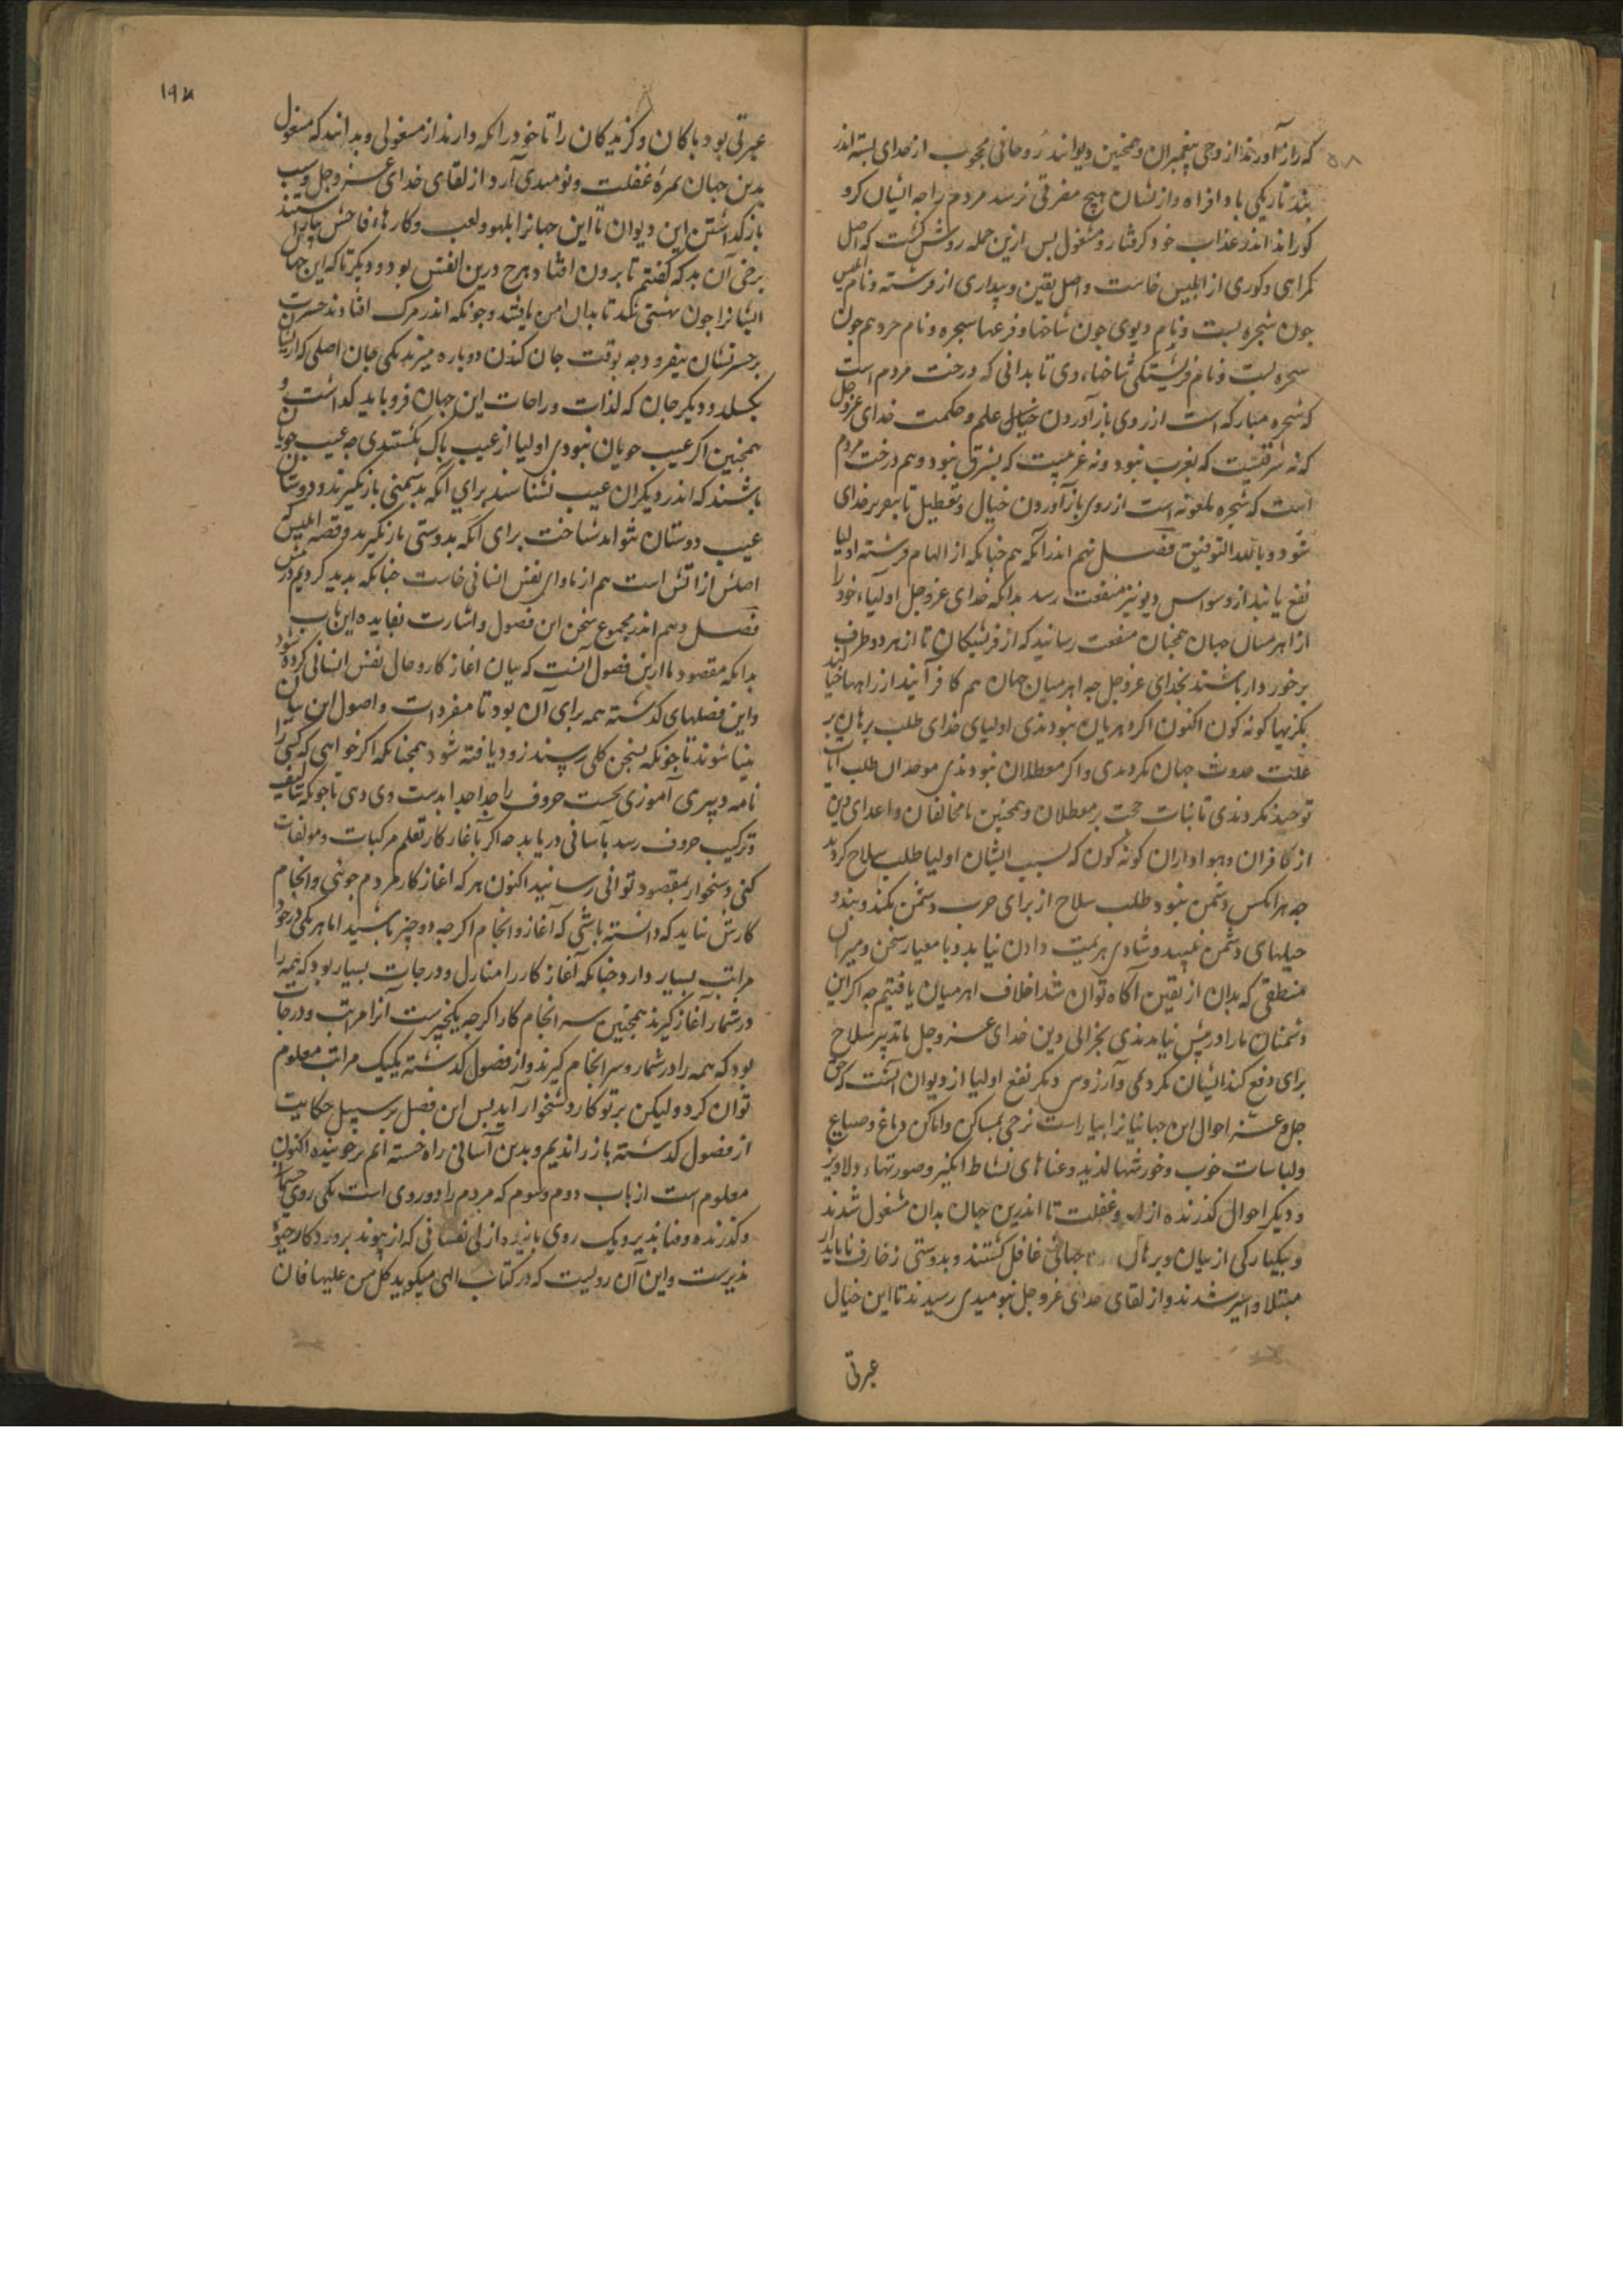 که راز آورند از وحی پیغمبران و همچنین دیوانند روحانی محجوب از خدای بسته اندر
بند تاریکی باد افراه و از نشان هیچ مفرقی نرسد مردم را جه ایشان کرو
کوراند اندر عذاب خود کرفتار و مشغول بس ازین جمله روشن کشت که اصل
کمراهی و کوری از ابلیس خاست و اصل یقین و بیداری از فرشته و نام ابلیس
جون شجره یست و نام دیوی جون شاخها و فرعها شجره و نام خرد هم جون
شجره یست و نام فریشتکی شاخهاء وی تا بدانی که درخت مردم است
که شجره مبارکه است از روی باز آوردن خیال علم و حکمت خدای عزوجل
که نه شرقیست که بغرب نبود و نه غربیست که بشرق نبود و هم درخت مردم
است که شجره ملعونه است از روی باز آوردن خیال و تعطیل تا بنفر بر خدای
شود و بالله التوفیق فصل نهم اندر آنکه هم جنانکه از الهام فرشته اولیا
نفع یابند از وسواس دیو نیز منفعت رسد بدانکه خدای عزوجل اولیاء خود را
از اهرمنان جهان همجنان منفعت رسانید که از فرشتکان تا از هر دو طرف
برخوردار باشند بخدای عزوجل جه اهرمنان جهان هم کافرانند از راهها خیالند
بکژیها کونه کون اکنون اکر دهریان نبودندی اولیای خدای طلب برهان بر
علت حدوث جهان نکردندی و اکر معطلان نبودندی موحدان طلب اثبات
توحید نکردندی تا بثبات حجت بر معطلان و همچنین با مخالفان و اعدای دین
از کافران و هواداران کونه کون که بسبب ایشان اولیا طلب سلاح کردند
جه هر انکس دشمن نبود طلب سلاح از برای حرب دشمن نکند و بند و
حیلهای دشمن نبیند و شادی هزیمت دادن نیابد و با معیار سخن و میزان
منطقی که بدان از یقین آکاه توان شد اخلاف اهرمنان یافتیم جه اکر این
دشمنان ما را در پیش نیامدندی بخرابی دین خدای عزوجل ما تدبیر سلاح
برای دفع کند ایشان نکردمی و آرزوی دیکر نفع اولیا از دیوان آنست که حق
جل و عز احوال این جهانیانرا بیاراست نزحی بمساکن و اماکن و باغ و ضیاع
و لباسات خوب و خورشها لذید و غناهای نشاط انکیز و صورتهاء دلاویز
و دیکر احوال کذرنده از لهو و غفلت تا اندرین جهان بدان مشغول شدند
و بیکبارکی از بیان و برهان جهانی غافل کشتند و بدوستی زخارف نابایدار
مبتلا و اسیر شدند و از لقای خدای عزوجل بنومیدی رسیدند تا این خیال
عبرتی
۱۹۷
عبرتی بود باکان و کزیدکان را تا خود را نکه دارند از مشغولی و بدانند که مشغول
بدین جهان ثمره غفلت و نومیدی آرد از لقای خدای عزوجل و سبب
بازکذاشتن این دیوان تا این جهانرا بلهو و لعب و کارهاء فاحش بیاراستند
برخی آن بد که کفتیم تا برون افتاد و هرج درین الفنس بود و دیکر تا که این جهان
ایشانرا جون بهشتی کند تا بدان امن یافتند و جونکه اندر مرک افتادند حسرت
بر حسرتشان بیفزود جه بوقت جان کندن دو باره میرند یکی جان اصلی که از ایشان
بکسلد و دیکر جان که لذات و راحات این جهان فرو باید کذاشت و
همچنین اکر عیب جویان نبودی اولیا از عیب باک نکشتندی جه عیب جویان
باشند که اندر دیکران عیب بشناسند برای آنکه بدشمنی بازنکیرند و دوستان
عیب دوستان نتوانند شناخت برای آنکه بدوستی بازنکیرند و قصه ابلیس که
اصلش از آتش است هم از ماوای نفس انسانی خاست جنانکه بدید کردیم در پیش
فصل دهم اندر مجموع سخن این فصول و اشارت بفایده این باب
بدانکه مقصود ما ازین فصول آنست که بیان آغاز کار و حال نفس انسانی کرده شود
و این فصلهای کذشته همه برای آن بود تا مفردات و اصول این بیان
بینا شوند تا جونکه بسخن کلی رسند زود یافته شود همچنانکه اکر خواهی که کسی را
نامه و دبیری آموزی نخست حروف را جدا جدا بدست وی دهی تا جونکه بتالیف
و ترکیب حروف رسد بآسانی دریابد جه اکر بآغاز کار تعلم مرکبات و مولفات
کنی دشخوار بمقصود توانی رسانید اکنون هر که آغاز کار مردم جوئی و انجام
کارش نباید که دانسته باشی که آغاز و انجام اکرجه دو جیز باشند اما هر یکی در خود
مراتب بسیار دارد جنانکه آغاز کار را منازل و درجات بسیار بود که همه را
در شمار آغاز کیرند همچنین سرانجام کار اکرجه یکجیزست آنرا مراتب و درجات
بود که همه را در شمار و سرانجام کیرند و از فصول کذشته یکیک مراتب معلوم
توان کرد ولیکن بر تو کار دشخوار آید بس این فصل بر سبیل حکایت
از فصول کذشته باز راندیم و بدین آسانی راه جسته ایم بر جوینده اکنون
معلوم است از باب دوم و سوم که مردم را دو روی است یکی روی جسمانی
و کذرنده و فنا بذیر و یک روی باینده ازلی نفسانی که از بیوند بروردکار حیوة
بذیرست و این آن رویست که در کتاب الهی میکوید کل من علیها فان